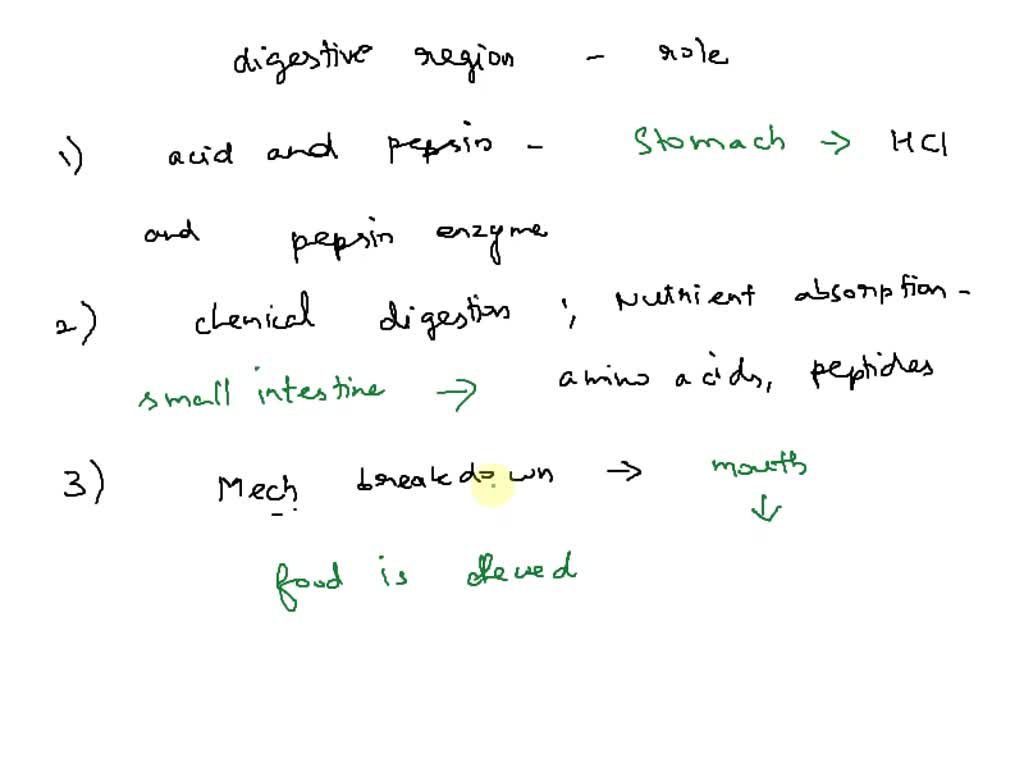 digestive region - role
1) acid and pepsin - Stomach → HCl
and pepsin enzyme
2) chemical digestion ; Nutrient absorption -
small intestine → amino acids, peptides
3) Mech breakdown → mouth
↓
food is chewed